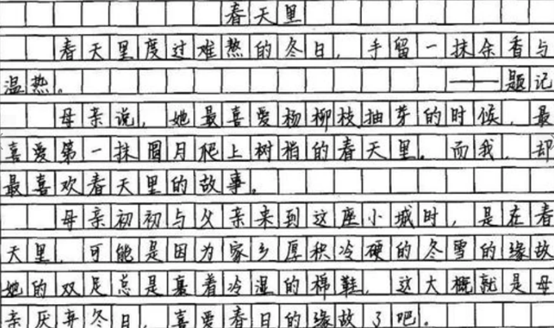 春天里
春天里度过难热的冬日，手留一抹余香与
温热。——题记
母亲说，她最喜爱杨柳枝抽芽的时候，最
喜爱第一抹圆月爬上树梢的春天里。而我，却
最喜欢春天里的故事。
母亲初初与父亲来到这座小城时，是在春
天里，可能是因为家乡厚积冷硬的冬雪的缘故
她的双足总是裹着冷湿的棉鞋，这大概就是母
亲厌弃冬日，喜爱春日的缘故了吧。